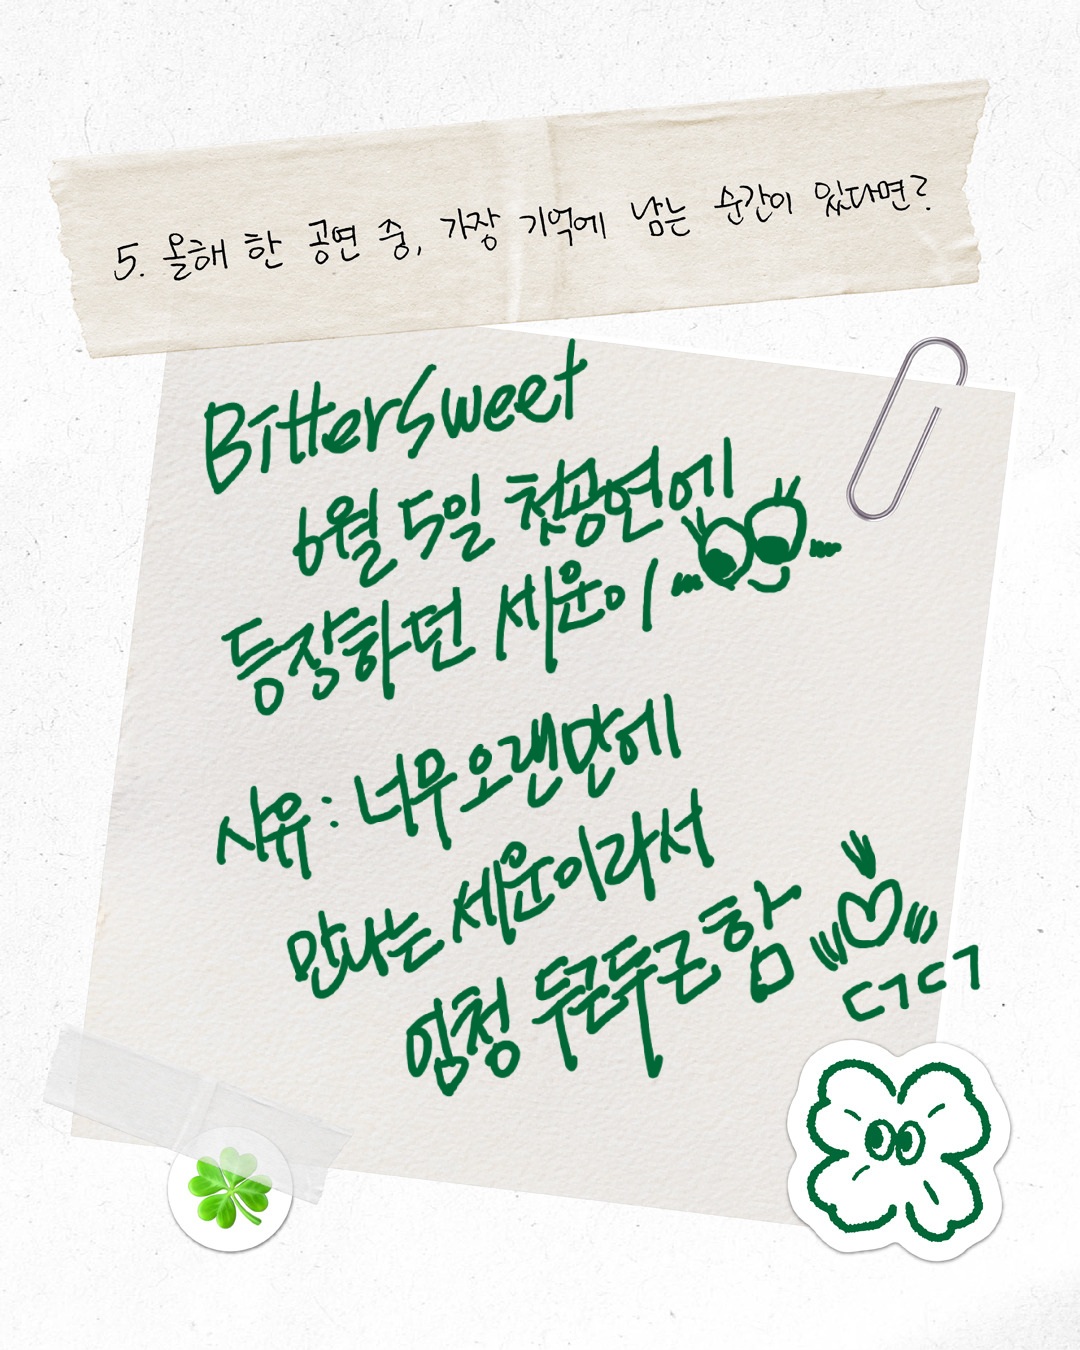 5. 올해 한 공연 중, 가장 기억에 남는 순간이 있다면?
BitterSweet
6월 5일 첫공연에
등장하던 세운이
사유 : 너무 오랜만에
만나는 세운이라서
엄청 두근두근함
ㄷㄱㄷㄱ